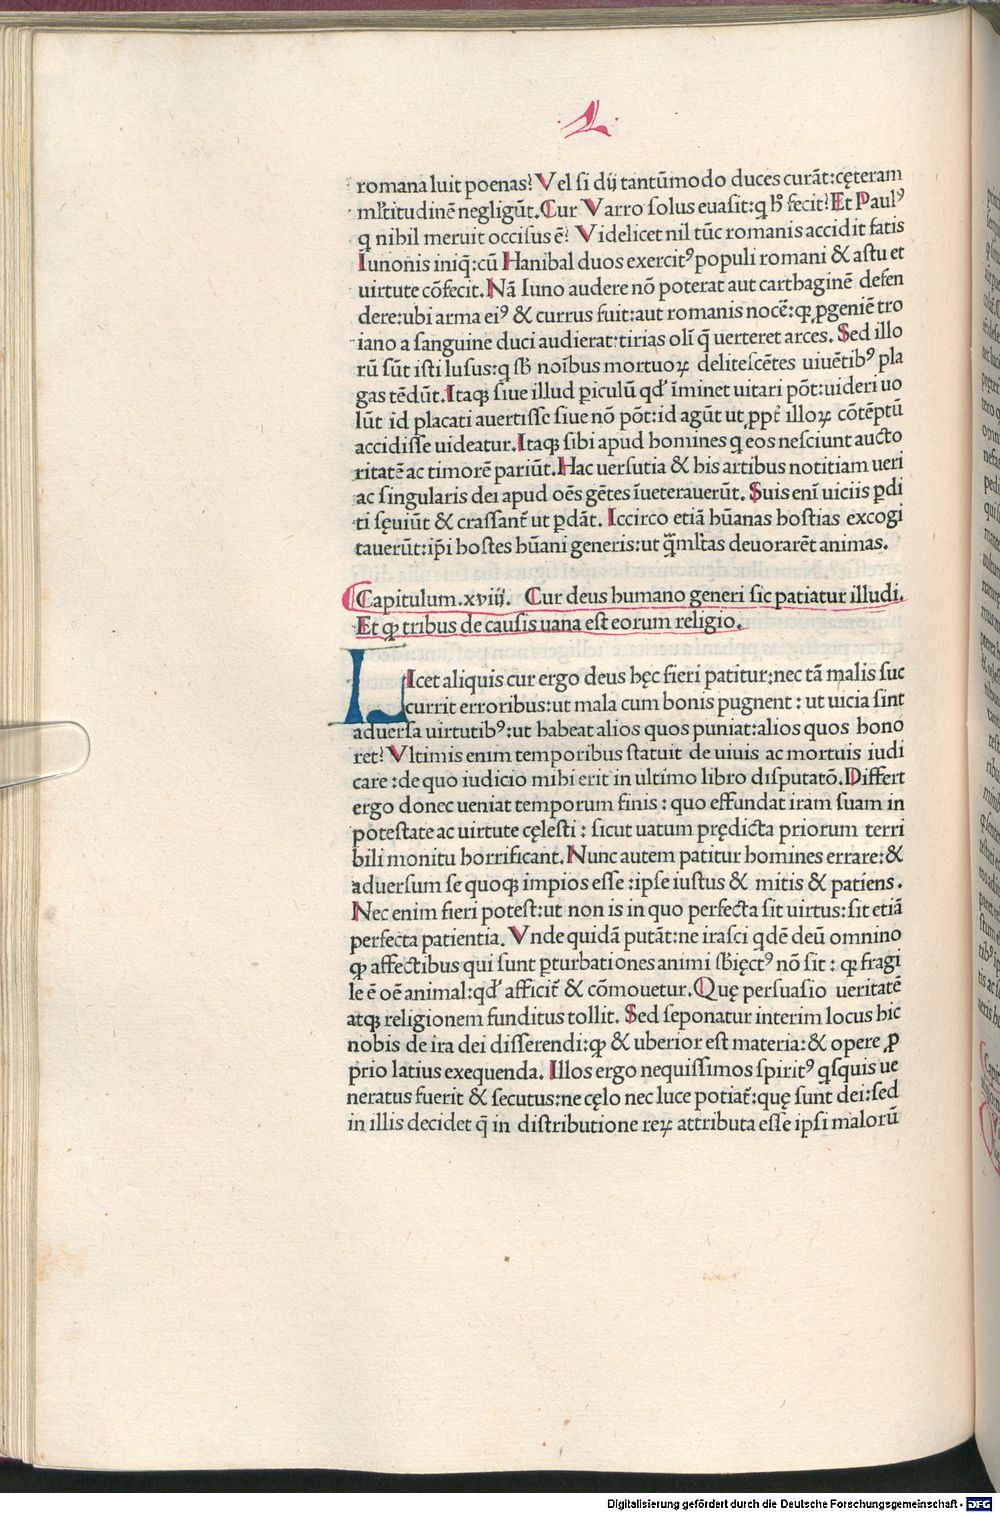 romana luit poenas? Vel si dij tantūmodo duces curāt:cęteram
mltitudinē negligūt. Cur Varro solus euasit:q h̄ fecit? Et Paulꝰ
q nihil meruit occisus ē? Videlicet nil tūc romanis accidit fatis
Iunonis iniq̄:cū Hanibal duos exercitꝰ populi romani & astu et
uirtute cōfecit. Nā Iuno audere nō poterat aut carthaginē defen
dere:ubi arma eiꝰ & currus fuit:aut romanis nocē:qꝫ ꝓgeniē tro
iano a sanguine duci audierat:tirias olī q̄ uerteret arces. Sed illo
rū sūt isti lusus:q sb̄ noībus mortuoꝝ delitescētes uiuētibꝰ pla
gas tēdūt. Itaqꝫ siue illud ꝑiculū qd̓ īminet uitari pōt:uideri uo
lūt id placati auertisse siue nō pōt:id agūt ut ꝓpt̄ illoꝝ cōtēptū
accidisse uideatur. Itaqꝫ sibi apud homines q eos nesciunt aucto
ritatē ac timorē pariūt. Hac uersutia & his artibus notitiam ueri
ac singularis dei apud oēs gētes īueterauerūt. Suis enī uiciis ꝑdi
ti sęuiūt & crassant̄ ut ꝑdāt. Iccirco etiā hūanas hostias excogi
tauerūt:ip̄i hostes hūani generis:ut q̄mltas deuorarēt animas.
Capitulum.xviij. Cur deus humano generi sic patiatur illudi.
Et qꝫ tribus de causis uana est eorum religio.
LIcet aliquis cur ergo deus hęc fieri patitur:nec tā malis suc
currit erroribus:ut mala cum bonis pugnent : ut uicia sint
aduersa uirtutibꝰ:ut habeat alios quos puniat:alios quos hono
ret? Vltimis enim temporibus statuit de uiuis ac mortuis iudi
care : de quo iudicio mihi erit in ultimo libro disputatō. Differt
ergo donec ueniat temporum finis : quo effundat iram suam in
potestate ac uirtute cęlesti : sicut uatum prędicta priorum terri
bili monitu horrificant. Nunc autem patitur homines errare:&
aduersum se quoqꝫ impios esse : ipse iustus & mitis & patiens.
Nec enim fieri potest:ut non is in quo perfecta sit uirtus:sit etiā
perfecta patientia. Vnde quidā putāt:ne irasci qdē deū omnino
qꝫ affectibus qui sunt ꝑturbationes animi sb̄ięctꝰ nō sit : qꝫ fragi
le ē oē animal:qd̓ afficit̄ & cōmouetur. Quę persuasio ueritatē
atqꝫ religionem funditus tollit. Sed seponatur interim locus hic
nobis de ira dei disserendi:qꝫ & uberior est materia:& opere ꝓ
prio latius exequenda. Illos ergo nequissimos spiritꝰ qsquis ue
neratus fuerit & secutus:ne cęlo nec luce potiat̄:quę sunt dei:sed
in illis decidet q̄ in distributione reꝝ attributa esse ipsi malorū
Digitalisierung gefördert durch die Deutsche Forschungsgemeinschaft - DFG